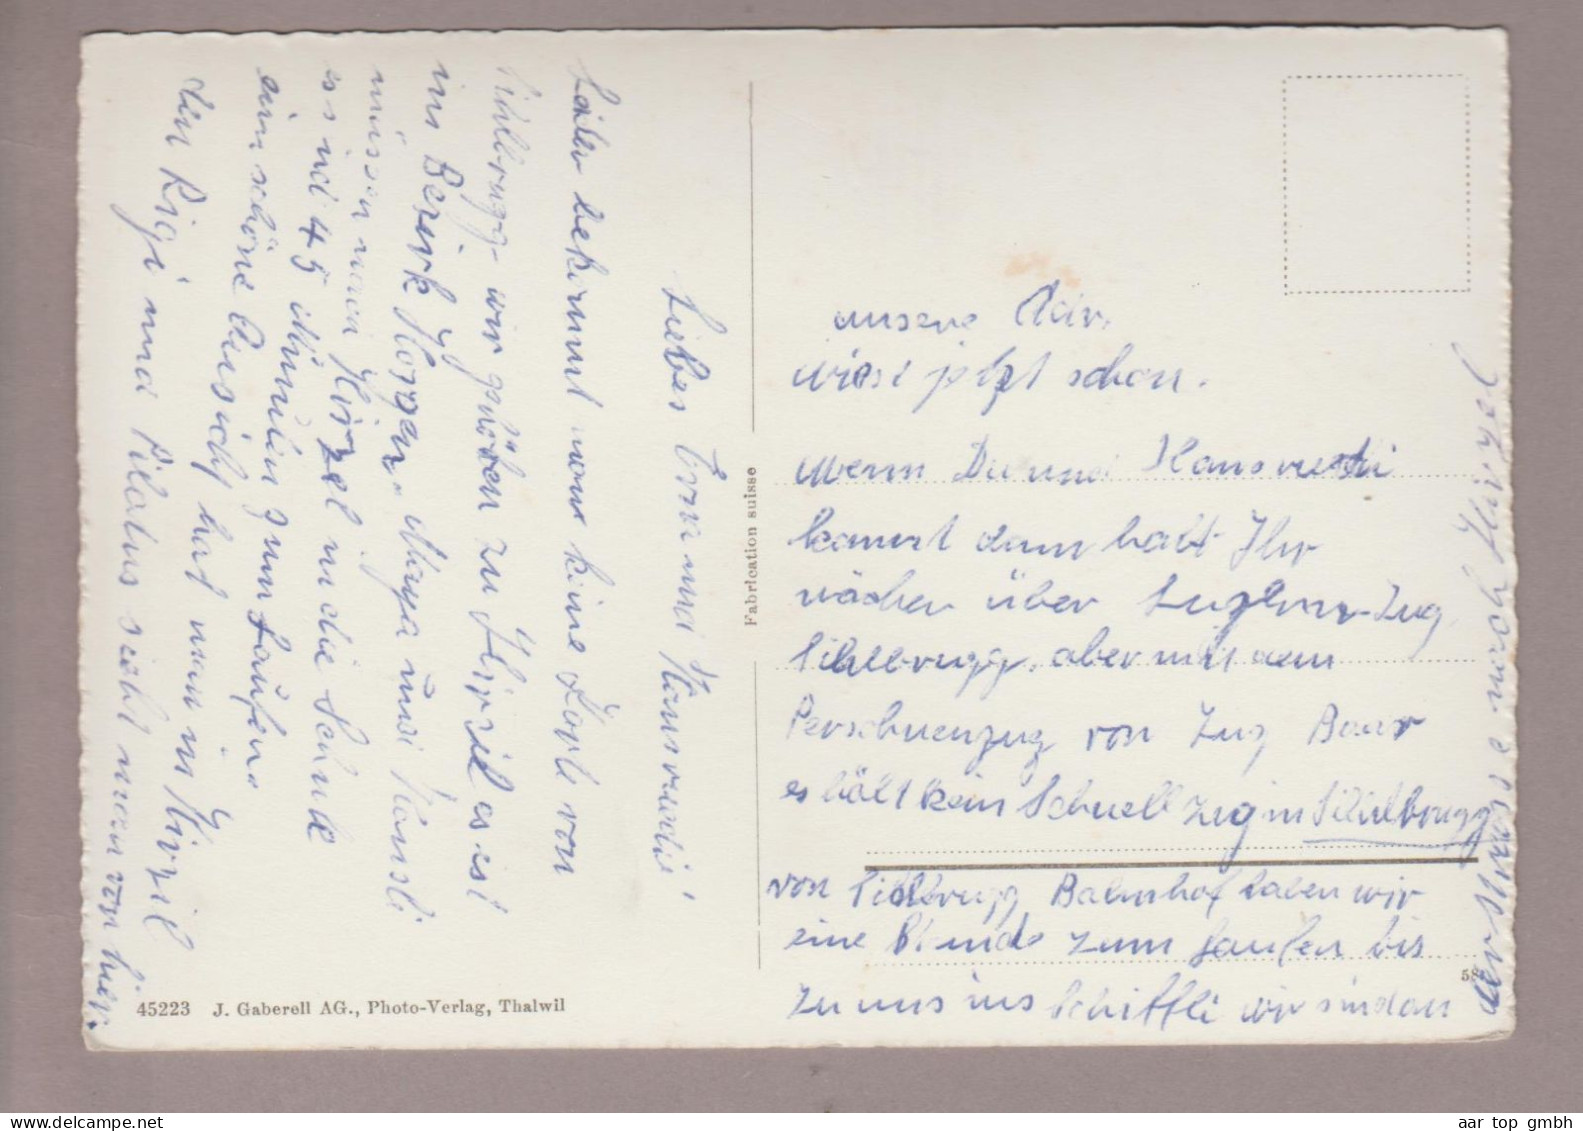 Liebes Erna und Hansruedi!
Leider bekommt man keine Karte von
Sihlbrugg. wir gehören zu Hirzel es ist
ins Bezirk Horgen. Maya und Hansli
müssen nach Hirzel in die Schule
es sind 45 Minuten zum Laufen.
ein schöne Aussicht hat man in Hirzel
den Rigi und Pilatus sieht man von hier.
unsere Adr.
wiest jetzt schon.
Wenn Du und Hansruedi
kommt dann habt Ihr
näcker über Luzern-Zug
Sihlbrugg, aber mit dem
Perschnenzug von Zug Baar
es hält kein Schnellzug in Sihlbrugg
von Sihlbrugg Bahnhof haben wir
eine Stunde zum laufen bis
zu uns ins Schiffli wir sind an
der Strasse nach Hirzel
Fabrication suisse
45223 J. Gaberell AG., Photo-Verlag, Thalwil
58
aar top gmbh